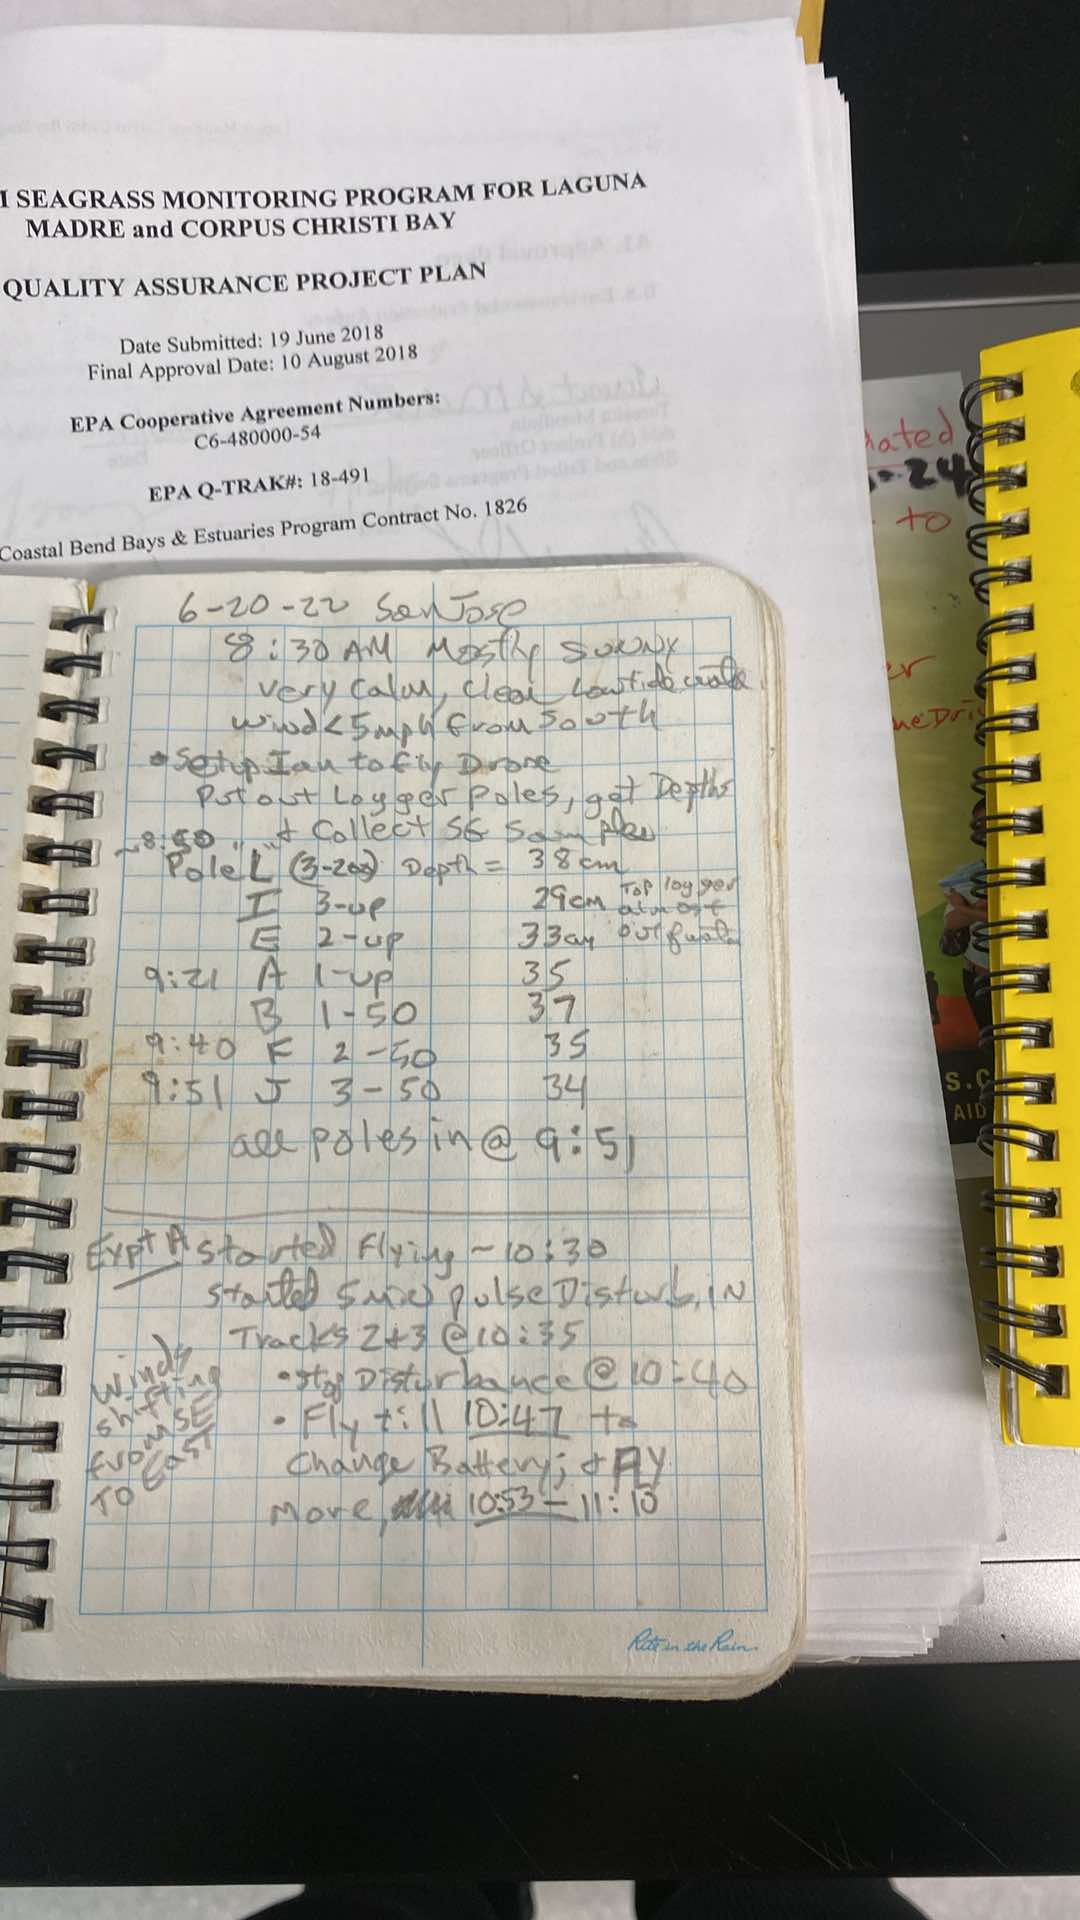 I SEAGRASS MONITORING PROGRAM FOR LAGUNA
MADRE and CORPUS CHRISTI BAY
QUALITY ASSURANCE PROJECT PLAN
Date Submitted: 19 June 2018
Final Approval Date: 10 August 2018
EPA Cooperative Agreement Numbers:
C6-480000-54
EPA Q-TRAK#: 18-491
Coastal Bend Bays & Estuaries Program Contract No. 1826
6-20-22 San Jose
8:30 AM Mostly sunny
very calm, clear Low tide
wind < 5 mph from South
• Setup Ian to fly Drone
Put out Logger Poles, get Depths
& Collect SG Samples
~8:50
Pole L (3-200) Depth = 38 cm
I 3-up 29cm Top logger
almost
E 2-up 33cm out of
9:21 A 1-up 35
B 1-50 37
9:40 F 2-50 35
9:51 J 3-50 34
all poles in @ 9:51
Expt A Started Flying ~10:30
Started 5 min pulse Disturb. in
Tracks 2+3 @ 10:35
• Stop Disturbance @ 10:40
• Fly till 10:47 to
Change Battery; & FLY
More, 10:53 – 11:10
Winds
shifting
from SE
TO East
Rite in the Rain
ated
-24
to
er
neDri
S.C
AID